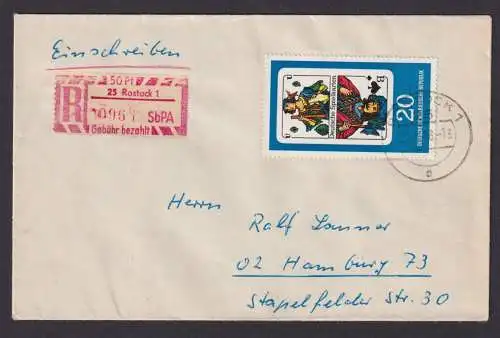 Einschreiben
50 Pf
25 Rostock 1
R
SbPA
Gebühr bezahlt
U
B
Deutsche Spielkarten
20
DEUTSCHE DEMOKRATISCHE REPUBLIK
CK 1
Herrn
Ralf Lanner
02 Hamburg 73
Stapelfelder Str. 30